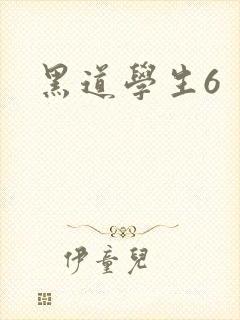 黑道學生6
伊童兒